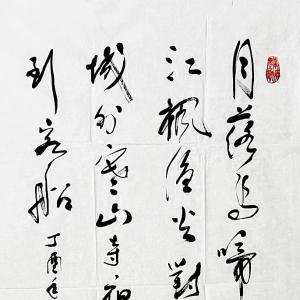 月落乌啼
江枫渔火对
城外寒山寺
到客船
丁酉年